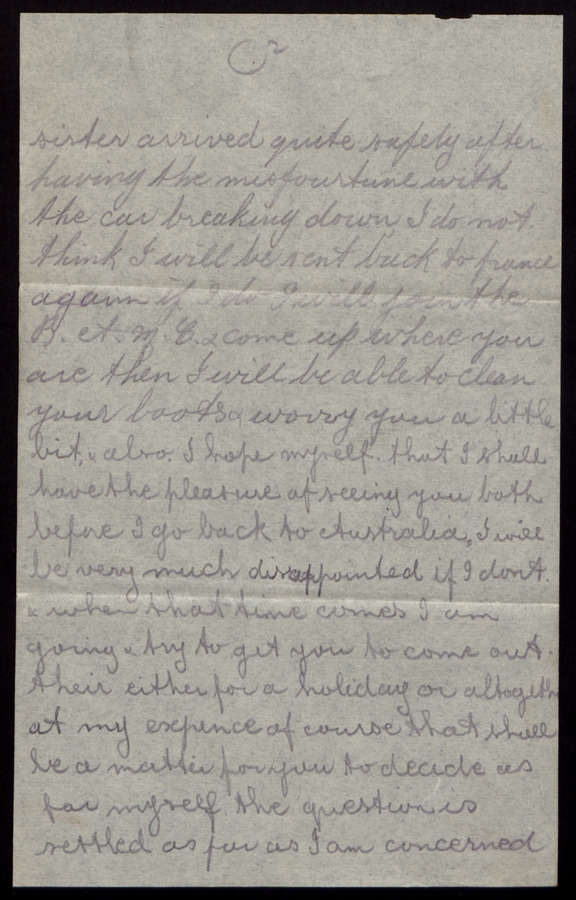 2
sister arrived quite safely after
having the misfourtune with
the car breaking down, I do not
think I will be sent back to france
again if I do I will join the
R. A. M. C. & come up where you
are then I will be able to clean
your boots & worry you a little
bit, & also. I hope myself. that I shall
have the pleasure of seeing you both
before I go back to Australia, I will
be very much disappointed if I don't.
& when that time comes I am
going & try to get you to come out.
their either for a holiday or altogeth
at my expence of course that shall
be a matter for you to decide as
for myself the question is
settled as far as I am concerned